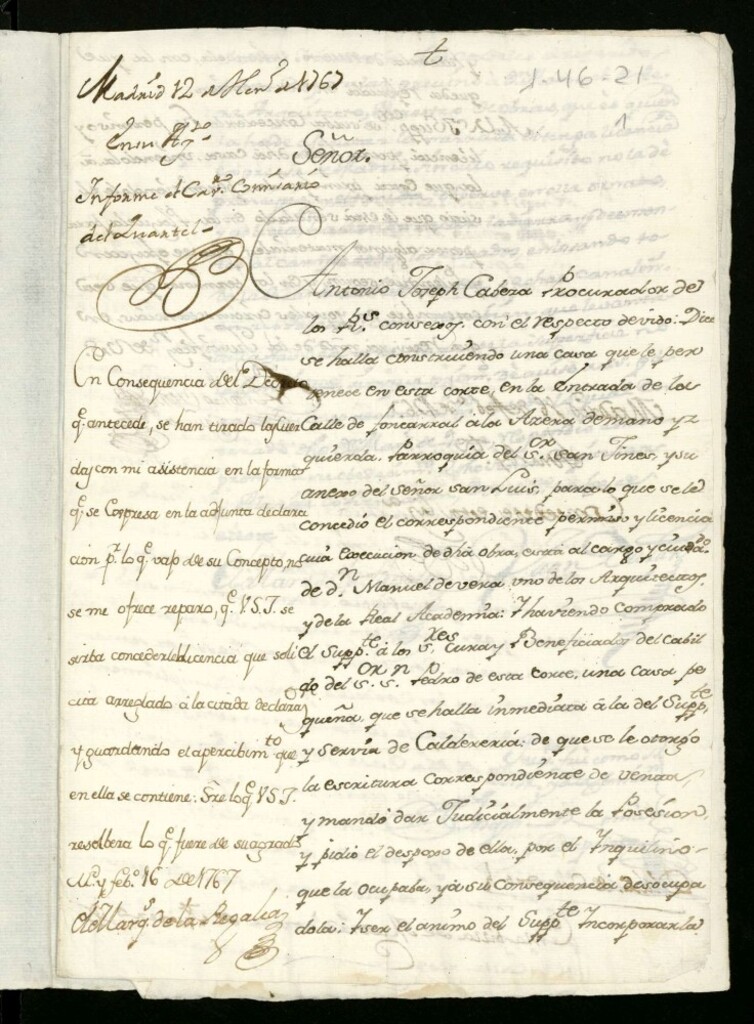 t
1-46-21
1
Madrid 12 de Hen.º de 1767
En su Ay.to
Informe el Cav.ro Comisario
del Quartel
Señor.
Antonio Joseph Cabeza Procurador de
los R.s consexos, con el respecto devido: Dice
se halla construiendo una casa que le per
tenece en esta corte, en la Entrada de la
Calle de foncarral â la Azera de mano yz
quierda. Parroquia del S.or san Jines, y su
anexo del señor san Luis, para lo que se le
concedió el correspondiente permiso y licencia
cuia execucion de dha obra, está al cargo y cuid.do
de d.n Manuel de vera uno de los Arquitectos,
y de la Real Academia: Y haviendo comprado
el Supp.te â los S.res Cura y Beneficiados del cabil
do del S.or S.n Pedro de esta corte, una casa pe
queña, que se halla inmediata â la del Supp.te
y servia de Caldereria: de que se le otorgo
la escritura correspondiente de venta,
y mandó dar Judicialmente la Posesion,
y pidio el despoxo de ella, por el Ynquilino
que la ocupaba, y a su consequencia desocupa
dola: Y ser el animo del Supp.te Yncorporarla
En Consequencia del Decreto
q.e antecede, se han tirado las Cuer
das con mi asistencia en la forma
q.e se Expresa en la adjunta declara
cion p.r lo q.e vajo de su Concepto, no
se me ofrece reparo, q.e V.S.I. se
sirba concederle la licencia que soli
cita arreglado â la citada declaraz.on
y guardando el apercibim.to que
en ella se contiene. Sre lo q.e V.S.I.
resolbera lo q.e fuere de su agrado
M.d y feb.o 16 de 1767
El Marq.s de la Regalia